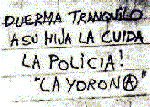 DUERMA TRANQUILO
A SU HIJA LA CUIDA
LA POLICIA!
"LA YORONⒶ"